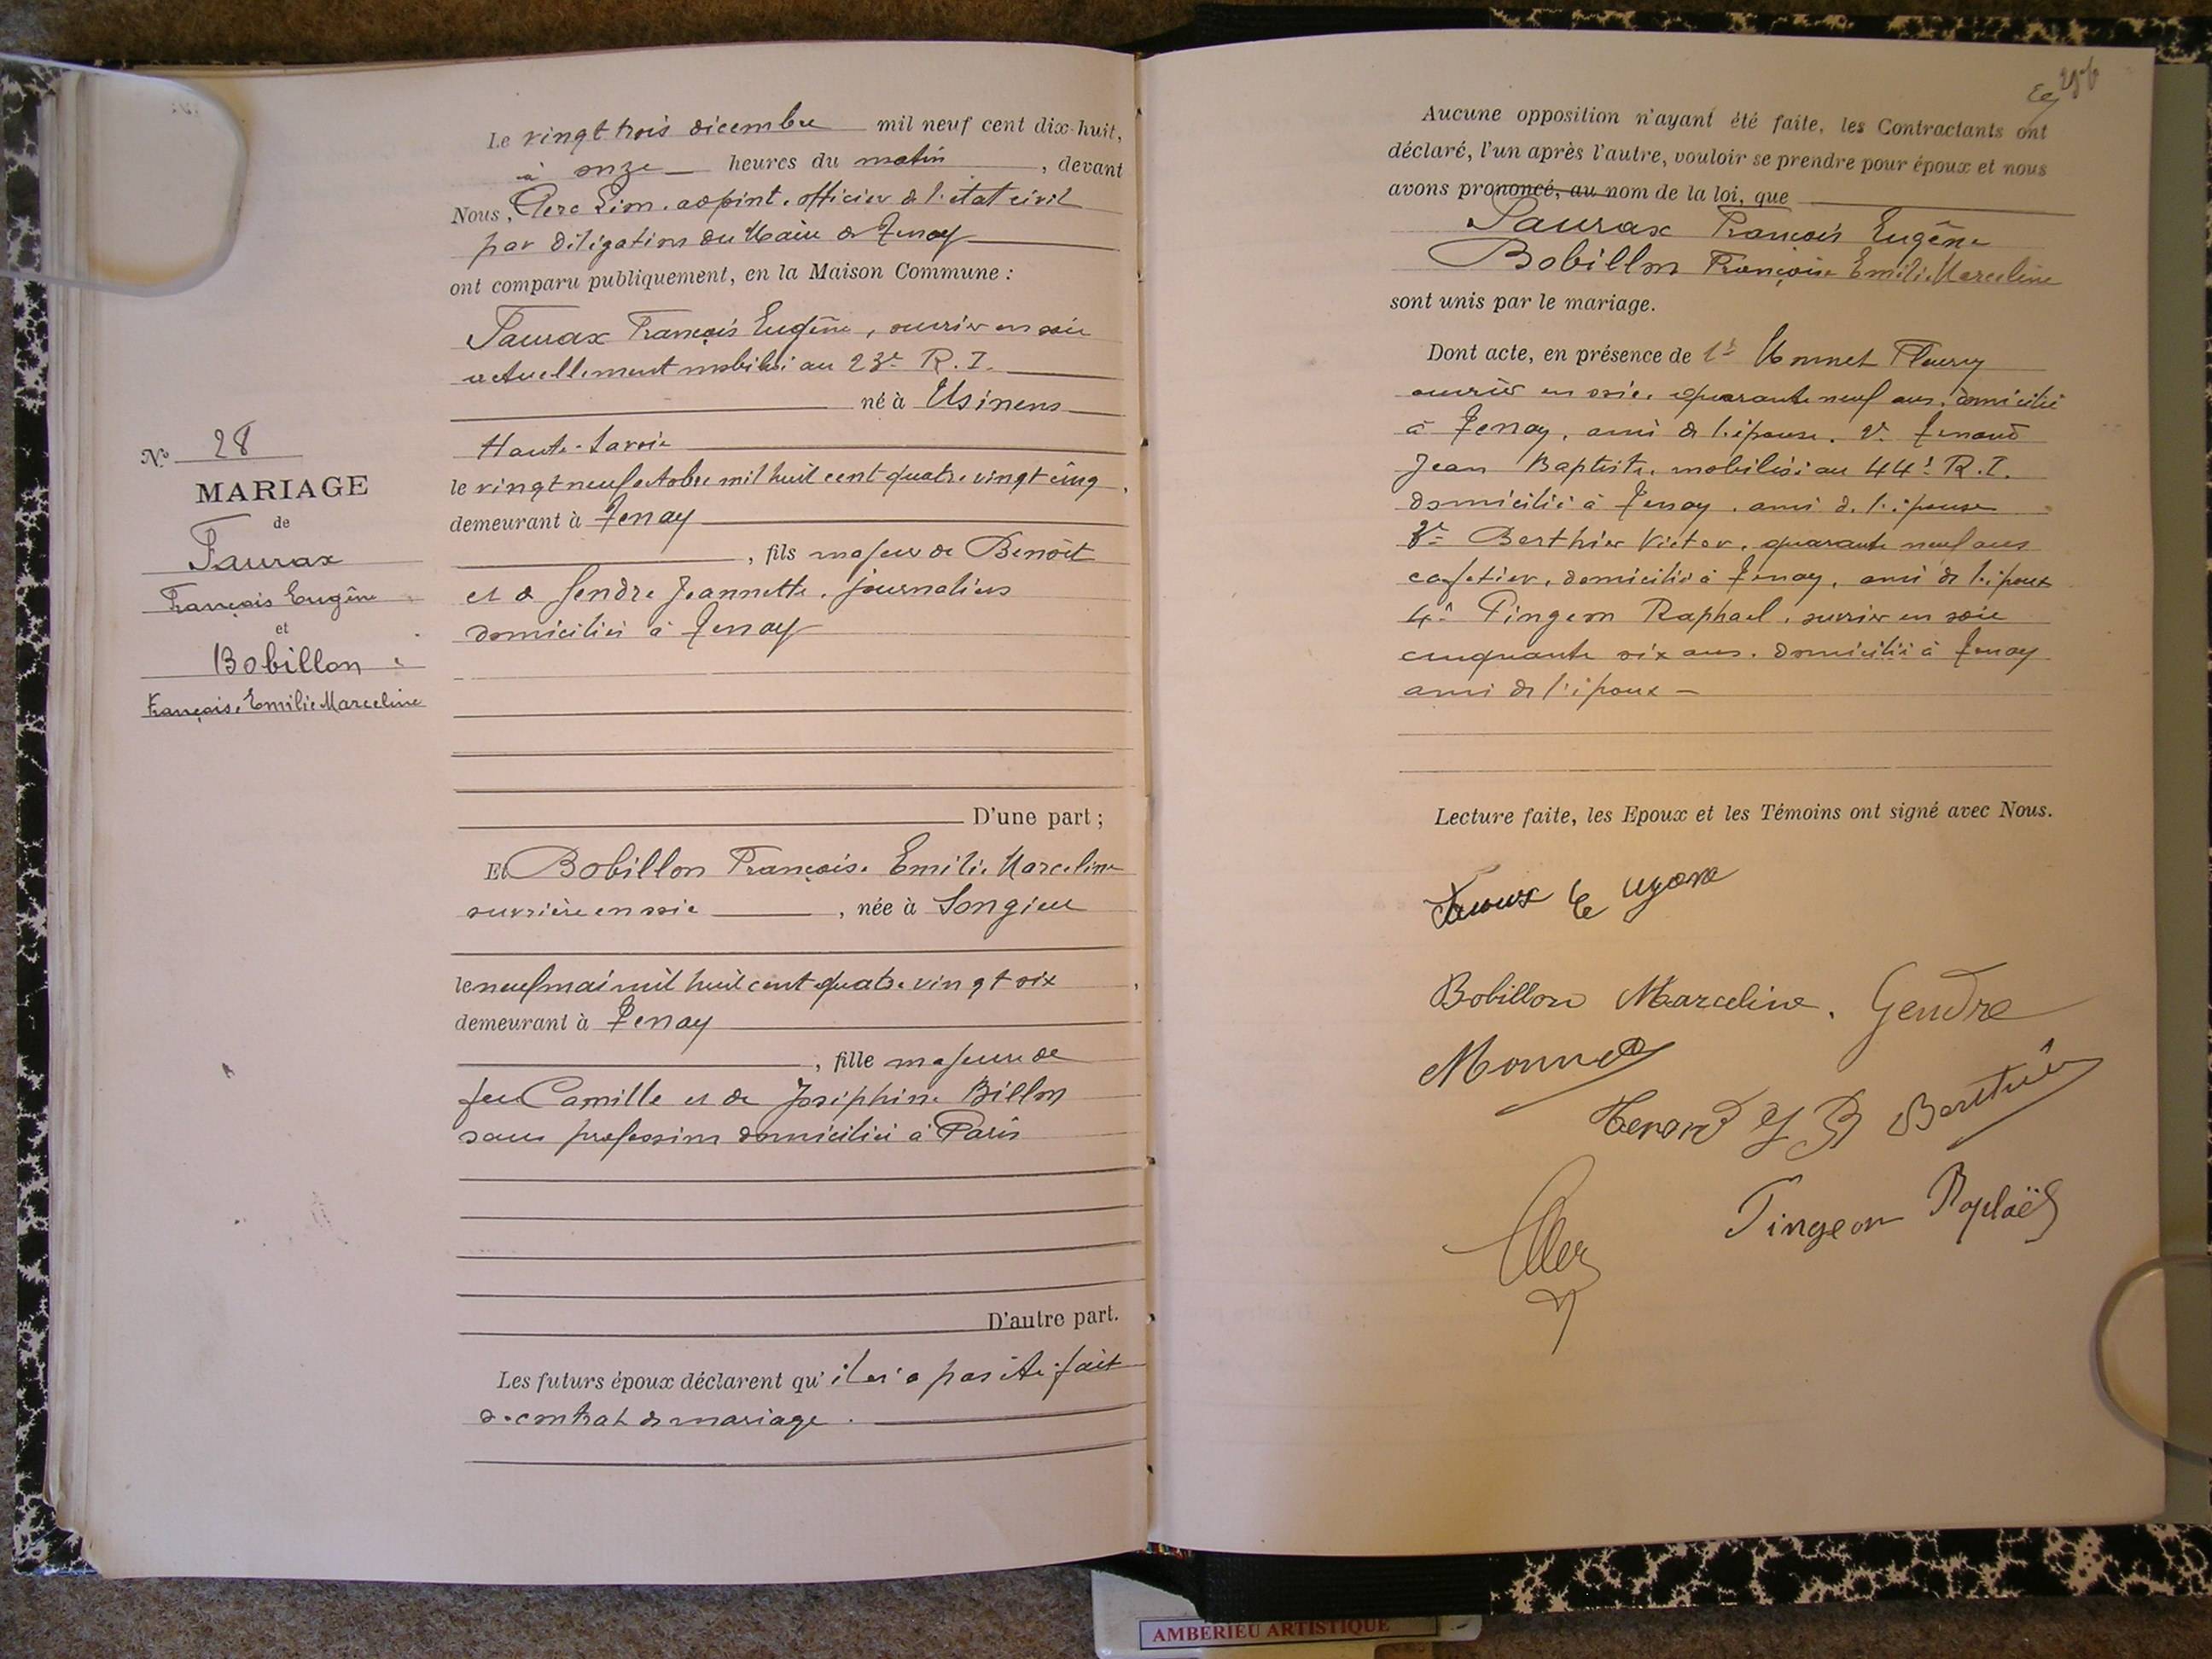 Le vingt trois décembre mil neuf cent dix-huit,
à onze heures du matin, devant
Nous, Clerc Léon, adjoint, officier de l'état civil
par délégation du Maire de Tenay
ont comparu publiquement, en la Maison Commune :
Faurax François Eugène, ouvrier en soie
actuellement mobilisé au 23e R.I.
né à Usinens
Haute-Savoie
le vingt neuf octobre mil huit cent quatre vingt cinq,
demeurant à Tenay
, fils majeur de Benoît
et de Gendre Jeannette, journaliers
domiciliés à Tenay
D'une part ;
Et Bobillon Françoise Emilie Marceline
ouvrière en soie, née à Songieu
le neuf mai mil huit cent quatre vingt six,
demeurant à Tenay
, fille majeure de
feu Camille et de Joséphine Billon
sans profession domiciliée à Paris
D'autre part.
Les futurs époux déclarent qu'il n'a pas été fait
de contrat de mariage.
No 28
MARIAGE
de
Faurax
François Eugène
et
Bobillon
Françoise Emilie Marceline
Aucune opposition n'ayant été faite, les Contractants ont
déclaré, l'un après l'autre, vouloir se prendre pour époux et nous
avons prononcé, au nom de la loi, que
Faurax François Eugène
Bobillon Françoise Emilie Marceline
sont unis par le mariage.
Dont acte, en présence de 1° Monnet Fleury
ouvrier en soie, quarante neuf ans, domicilié
à Tenay, ami de l'épouse. 2° Tenand
Jean Baptiste, mobilisé au 44e R.I.
domicilié à Tenay, ami de l'épouse
3° Berthier Victor, quarante neuf ans
cafetier, domicilié à Tenay, ami de l'époux
4° Pingeon Raphael, ouvrier en soie
cinquante six ans, domicilié à Tenay
ami de l'époux
Lecture faite, les Epoux et les Témoins ont signé avec Nous.
Bobillon Marceline. Gendre
Monnet
Tenand J B Berthier
Pingeon Raphaël
AMBERIEU ARTISTIQUE